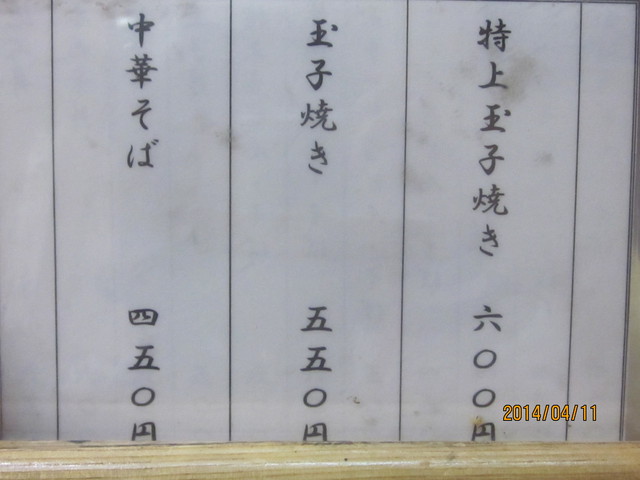 特上玉子焼き 六〇〇円
玉子焼き 五五〇円
中華そば 四五〇円
2014/04/11